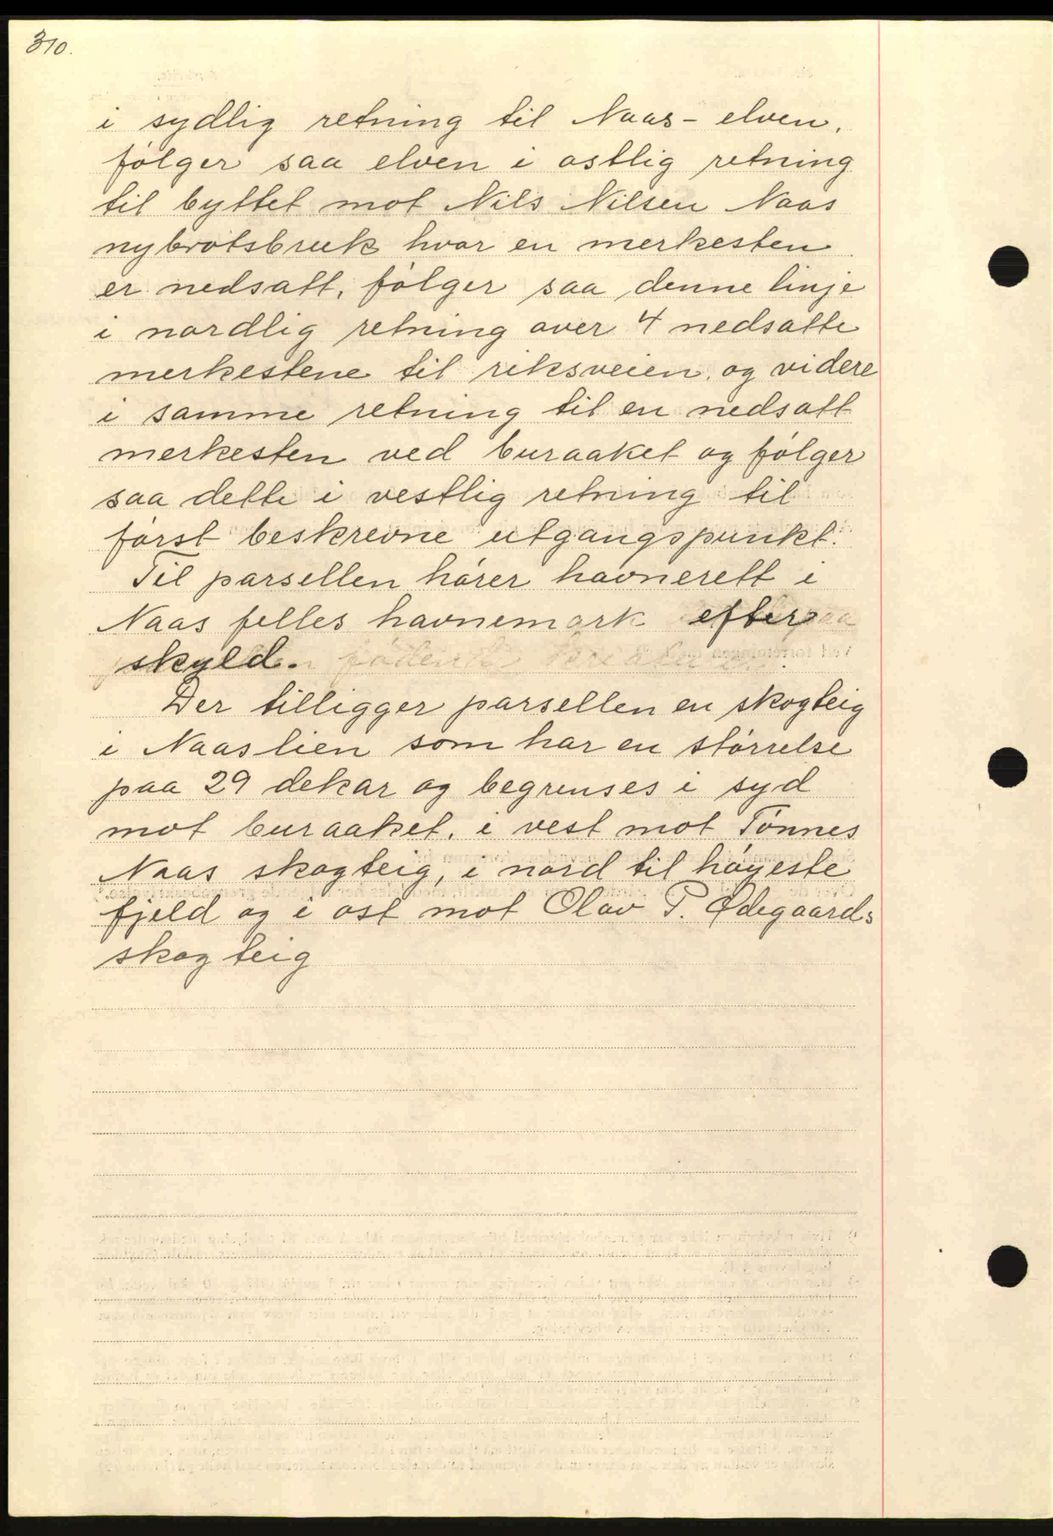 310.
i sydlig retning til Naas-elven,
følger saa elven i østlig retning
til byttet mot Nils Nilsen Naas
nybrotsbruk hvor en merkesten
er nedsatt, følger saa denne linje
i nordlig retning over 4 nedsatte
merkestene til riksveien og videre
i samme retning til en nedsatt
merkesten ved buraaket og følger
saa dette i vestlig retning til
først beskrevne utgangspunkt.
Til parsellen hører havnerett i
Naas felles havnemark efter
skyld.
Der tilligger parsellen en skogteig
i Naaslien som har en størrelse
paa 29 dekar og begrenses i syd
mot buraaket, i vest mot Tønnes
Naas skogteig, i nord til høyeste
fjeld og i øst mot Olav P. Ødegaards
skogteig